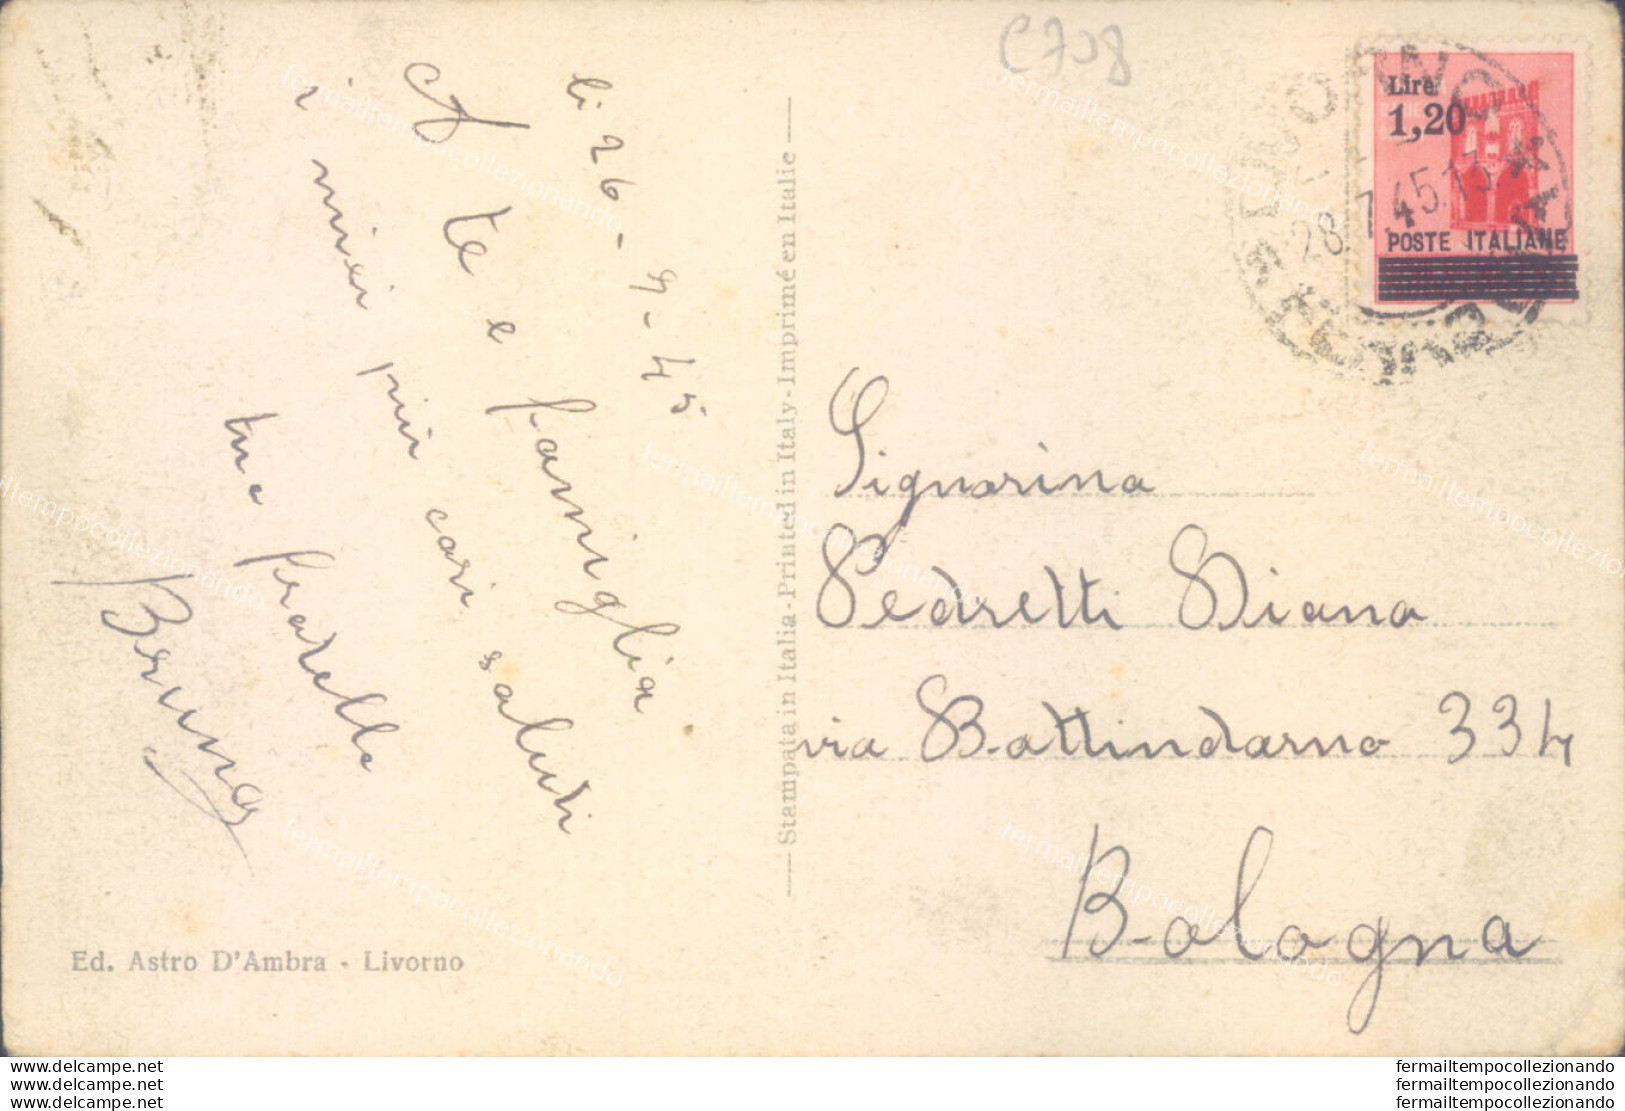 C708
li 26-7-45
A te e famiglia
i miei più cari saluti
tuo fratello
Bruno
Ed. Astro D'Ambra - Livorno
Stampata in Italia - Printed in Italy - Imprimé en Italie
Lire
1,20
POSTE ITALIANE
LIVORNO
28.7.45.13
Signorina
Pedretti Diana
via Battindarno 334
Bologna
fermailtempocollezionando
www.delcampe.net
www.delcampe.net
www.delcampe.net
fermailtempocollezionando
fermailtempocollezionando
fermailtempocollezionando